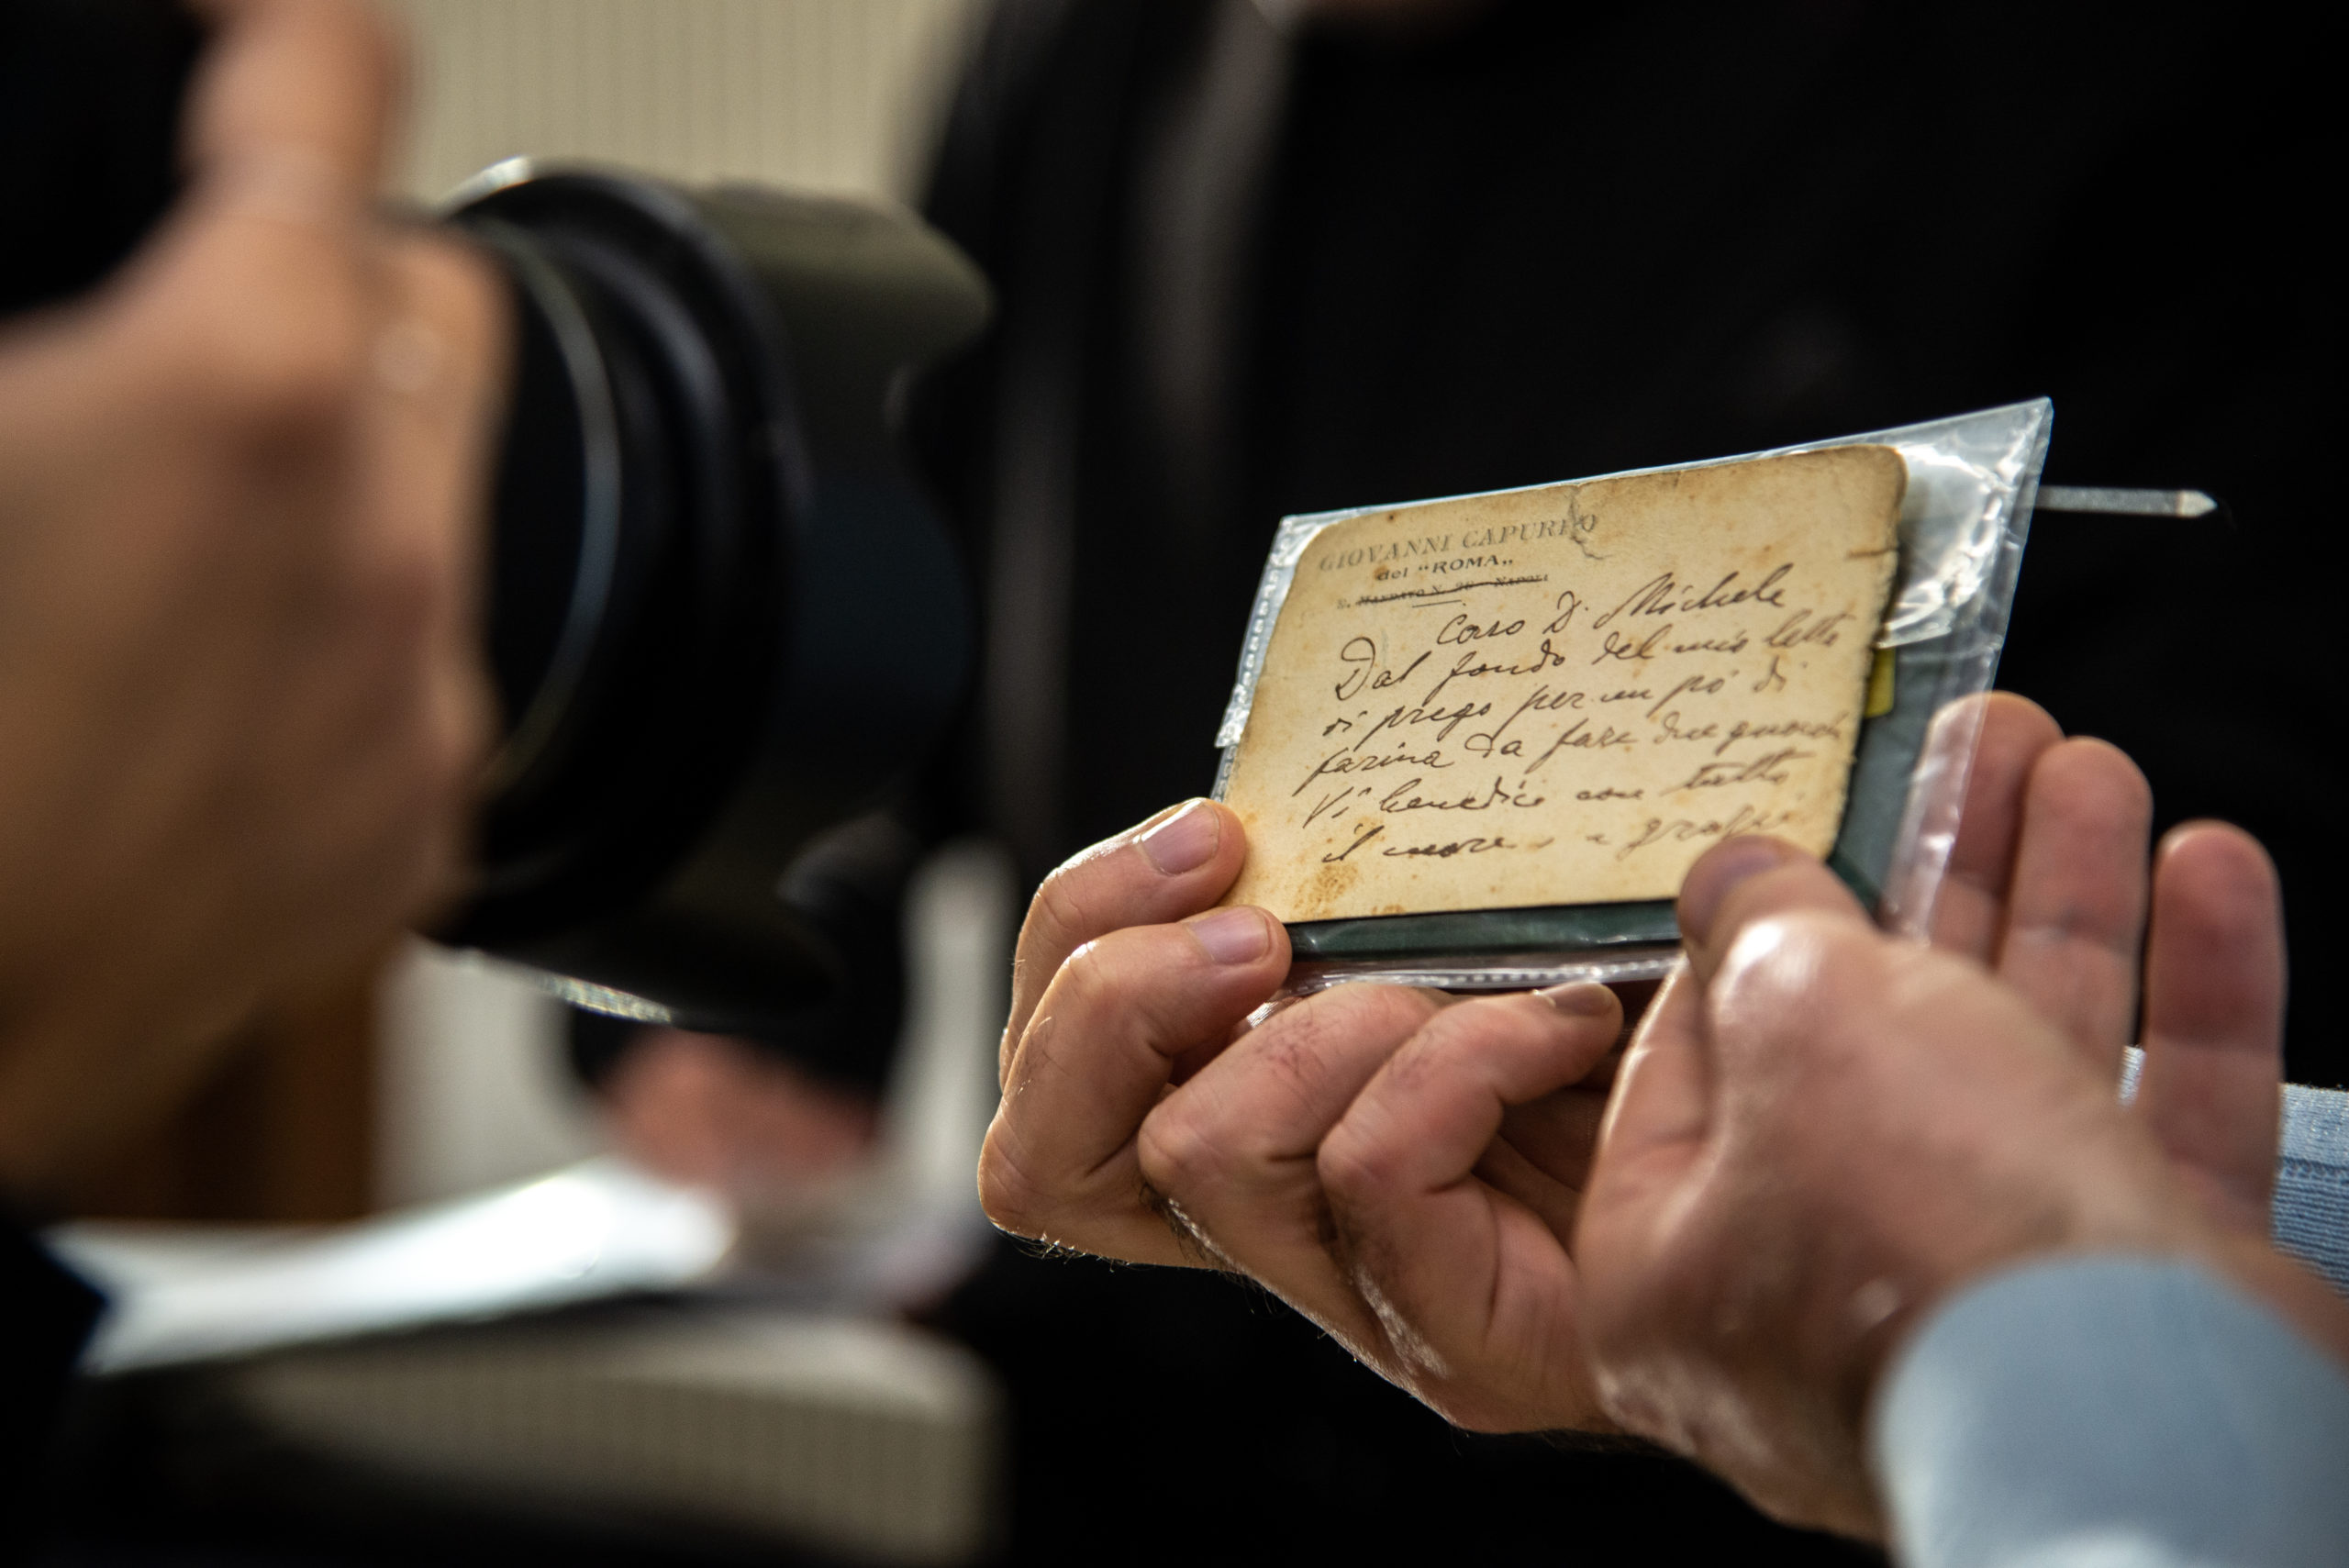 GIOVANNI CAPURRO
del "ROMA„
S. MANDATO N. 26 - NAPOLI
Caro D. Michele
Dal fondo del mio letto
vi prego per un pó di
farina da fare due gnocchi
Vi benedico con tutto
il cuore